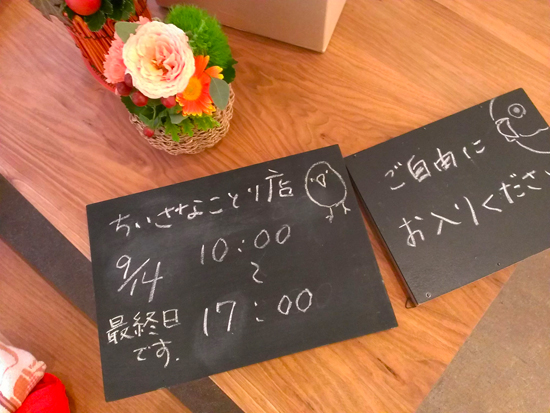 ちいさなことり店
9/14
10:00
〜
17:00
最終日
です.
ご自由に
お入りください